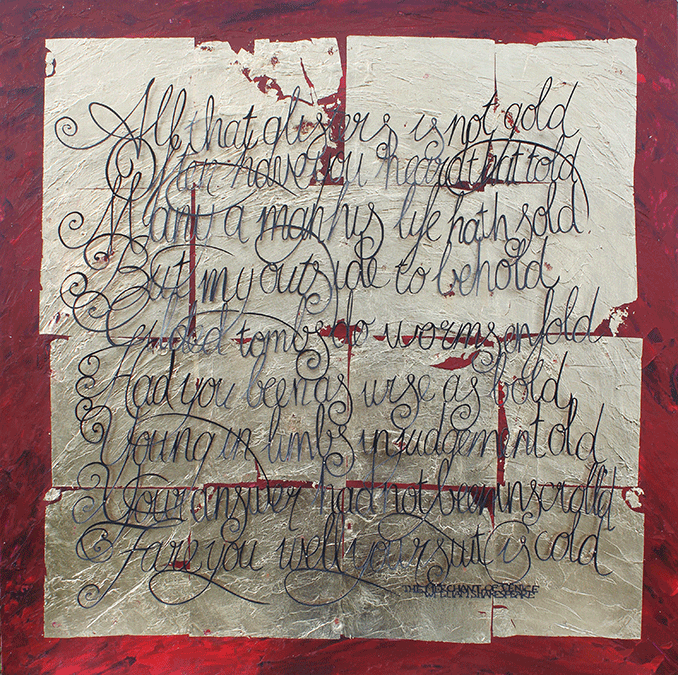 All that glisters is not gold
Often have you heard that told
Many a man his life hath sold
But my outside to behold
Gilded tombs do worms enfold
Had you been as wise as bold,
Young in limbs in judgement old
Your answer had not been inscroll'd
Fare you well your suit is cold
THE MERCHANT OF VENICE
WILLIAM SHAKESPEARE